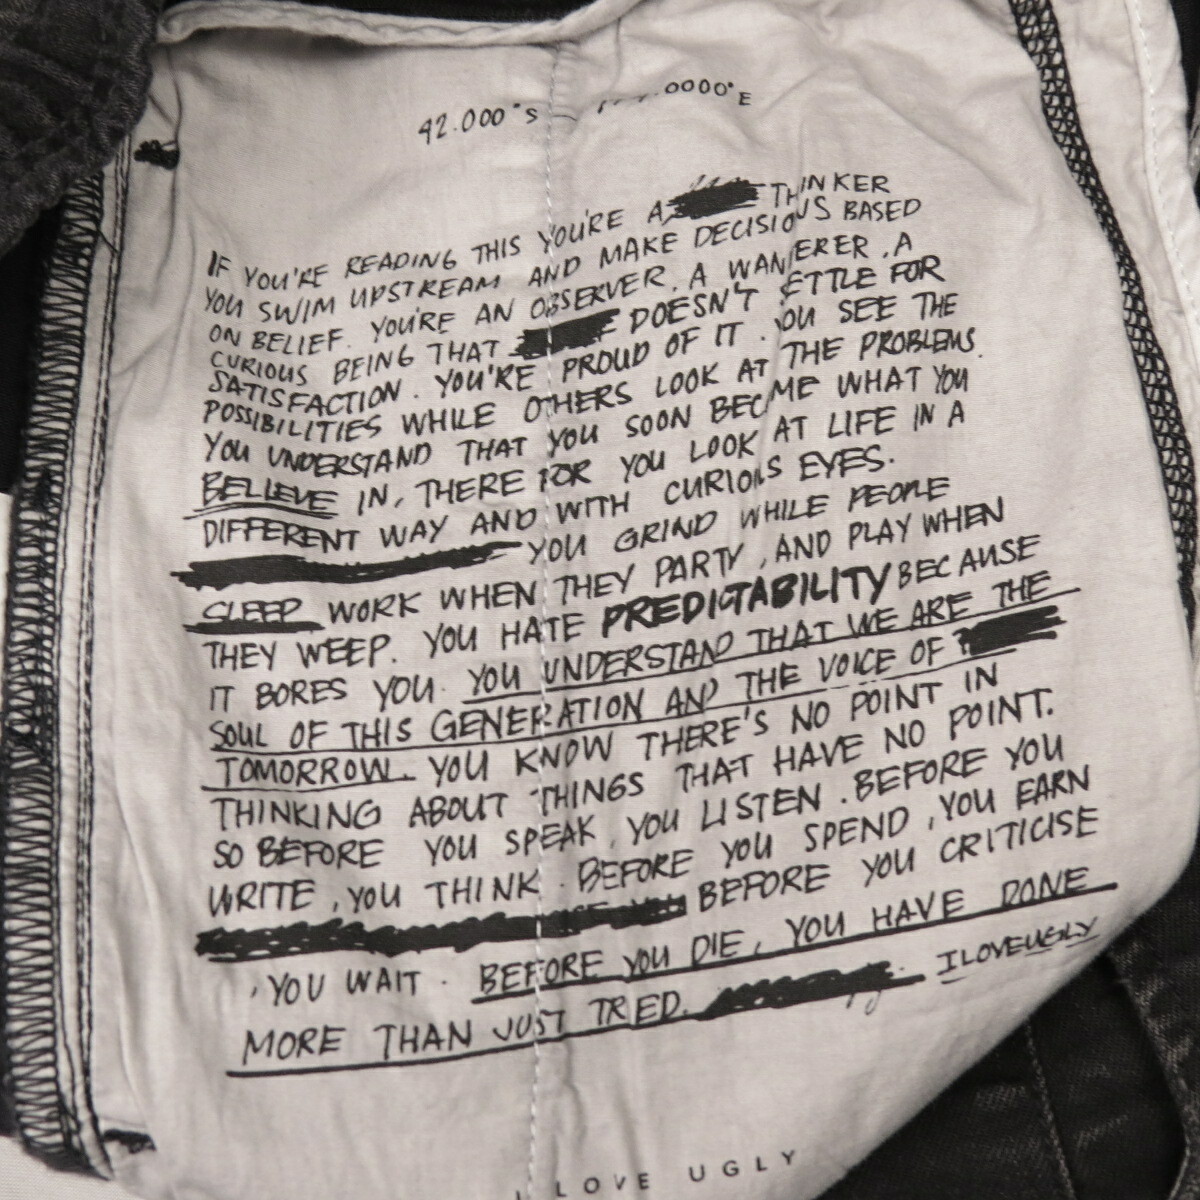 42.000°S
IF YOU'RE READING THIS YOU'RE A THINKER
YOU SWIM UPSTREAM AND MAKE DECISIONS BASED
ON BELIEF. YOU'RE AN OBSERVER, A WANDERER, A
CURIOUS BEING THAT DOESN'T SETTLE FOR
SATISFACTION. YOU'RE PROUD OF IT. YOU SEE THE
POSSIBILITIES WHILE OTHERS LOOK AT THE PROBLEMS.
YOU UNDERSTAND THAT YOU SOON BECOME WHAT YOU
BELIEVE IN, THERE FOR YOU LOOK AT LIFE IN A
DIFFERENT WAY AND WITH CURIOUS EYES.
YOU GRIND WHILE PEOPLE
SLEEP WORK WHEN THEY PARTY, AND PLAY WHEN
THEY WEEP. YOU HATE PREDICTABILITY BECAUSE
IT BORES YOU. YOU UNDERSTAND THAT WE ARE THE
SOUL OF THIS GENERATION AND THE VOICE OF
TOMORROW. YOU KNOW THERE'S NO POINT IN
THINKING ABOUT THINGS THAT HAVE NO POINT.
SO BEFORE YOU SPEAK, YOU LISTEN. BEFORE YOU
WRITE, YOU THINK. BEFORE YOU SPEND, YOU EARN
BEFORE YOU CRITICISE
, YOU WAIT. BEFORE YOU DIE, YOU HAVE DONE
MORE THAN JUST TRIED. ILOVEUGLY
I LOVE UGLY